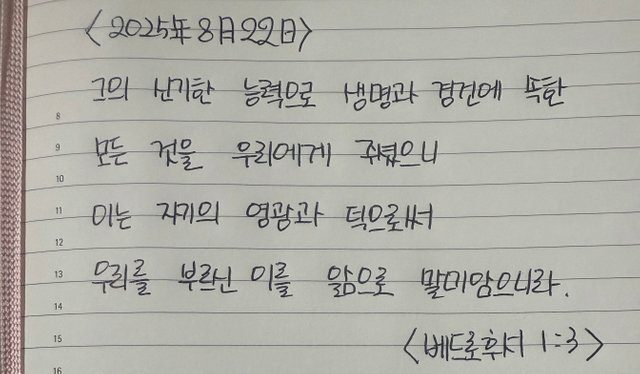 <2025年 8月 22日>
그의 신기한 능력으로 생명과 경건에 속한
8
9
모든 것을 우리에게 주셨으니
10
11
이는 자기의 영광과 덕으로써
12
13
우리를 부르신 이를 앎으로 말미암으니라.
14
<베드로후서 1:3>
15
16